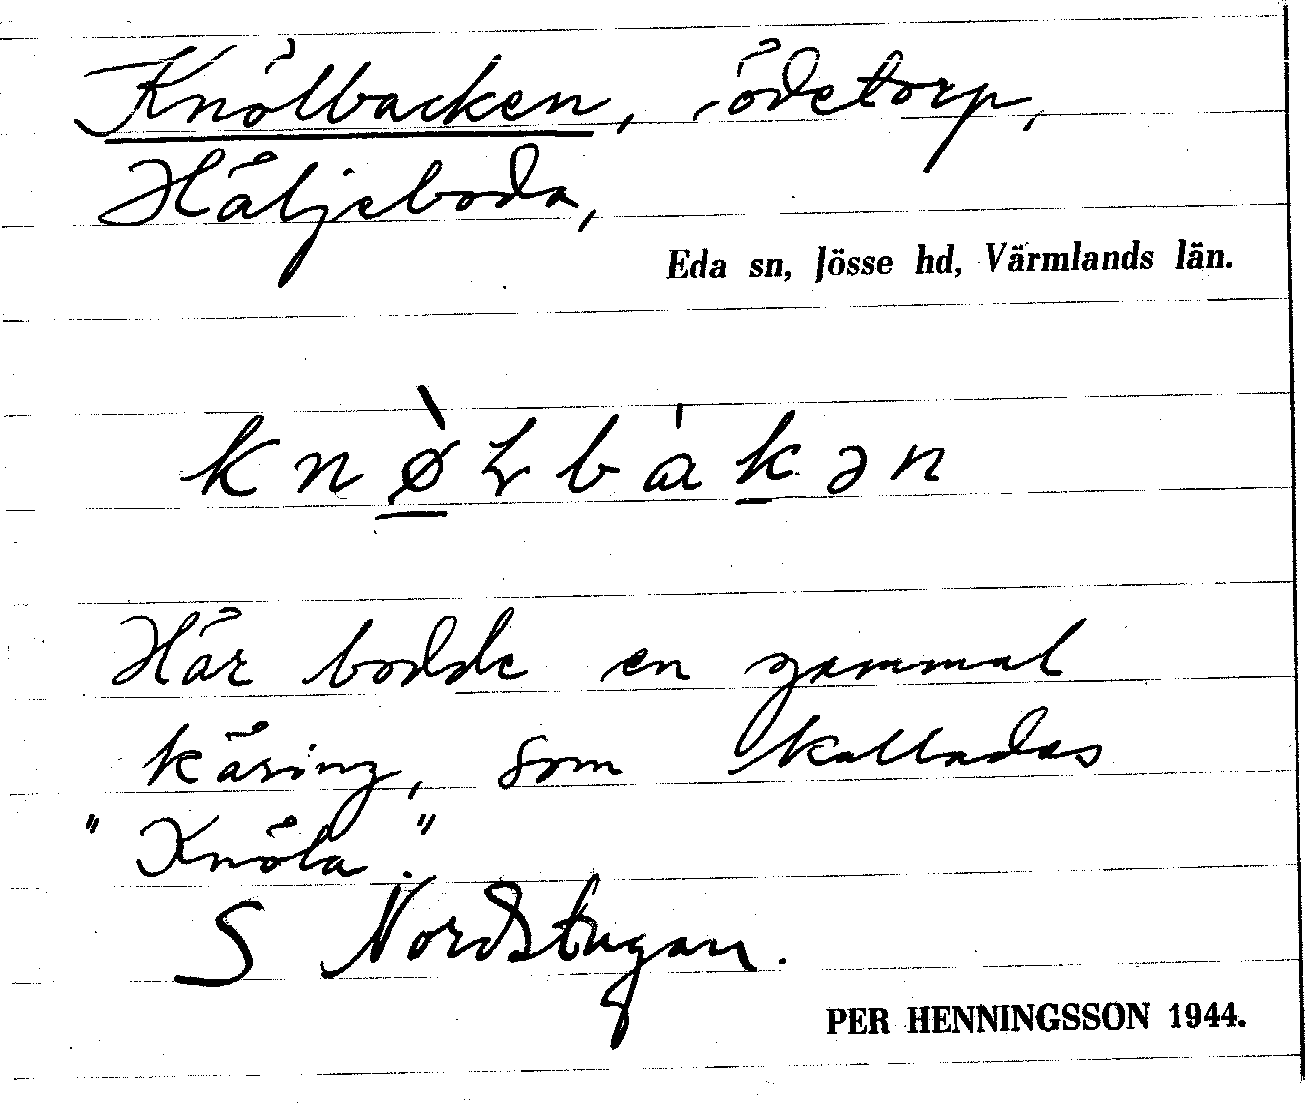 Knölbacken, ödetorp,
Häljeboda,
Eda sn, Jösse hd, Värmlands län.
knø̀Lbàkən
Här bodde en gammal
käring, som kallades
"Knöla".
S Nordstugan.
PER HENNINGSSON 1944.